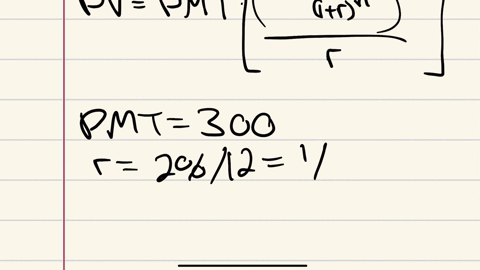 PV = PMT [ ( (1+r)^n ) / r ]
PMT = 300
r = 2%/12 = 1/